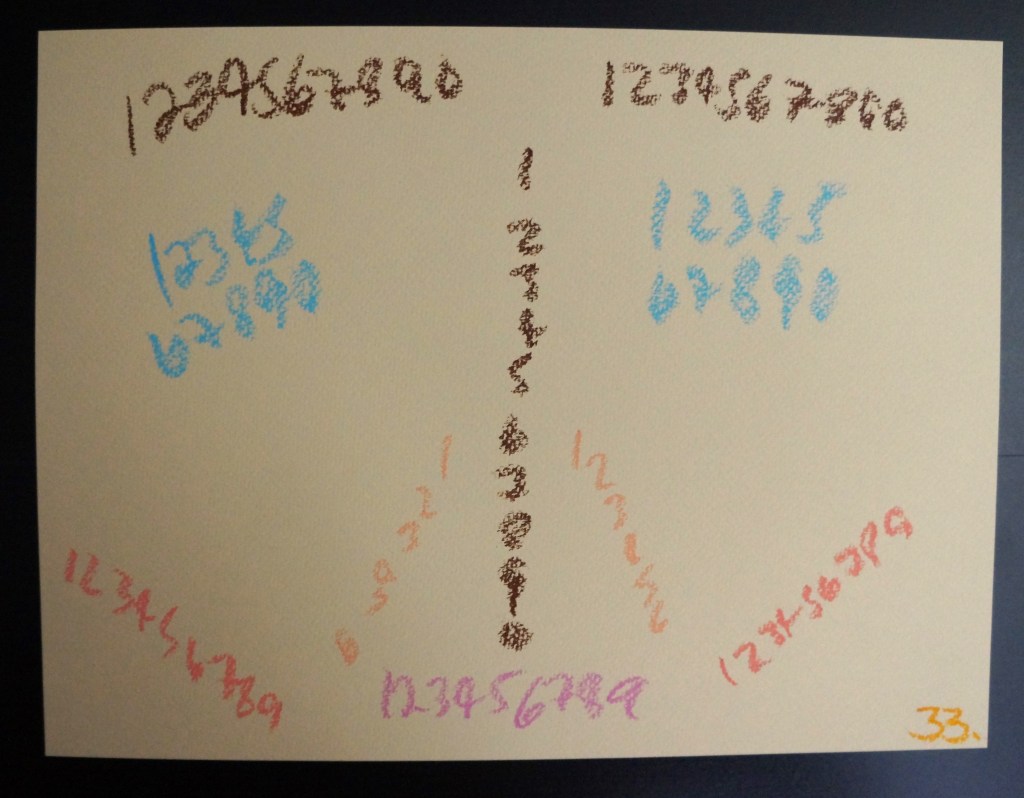 1234567890
1234567890
1
2
3
4
5
6
7
8
9
0
12345
67890
12345
67890
1
2
3
4
5
6
1
2
3
4
5
6
123456789
123456789
123456789
33.